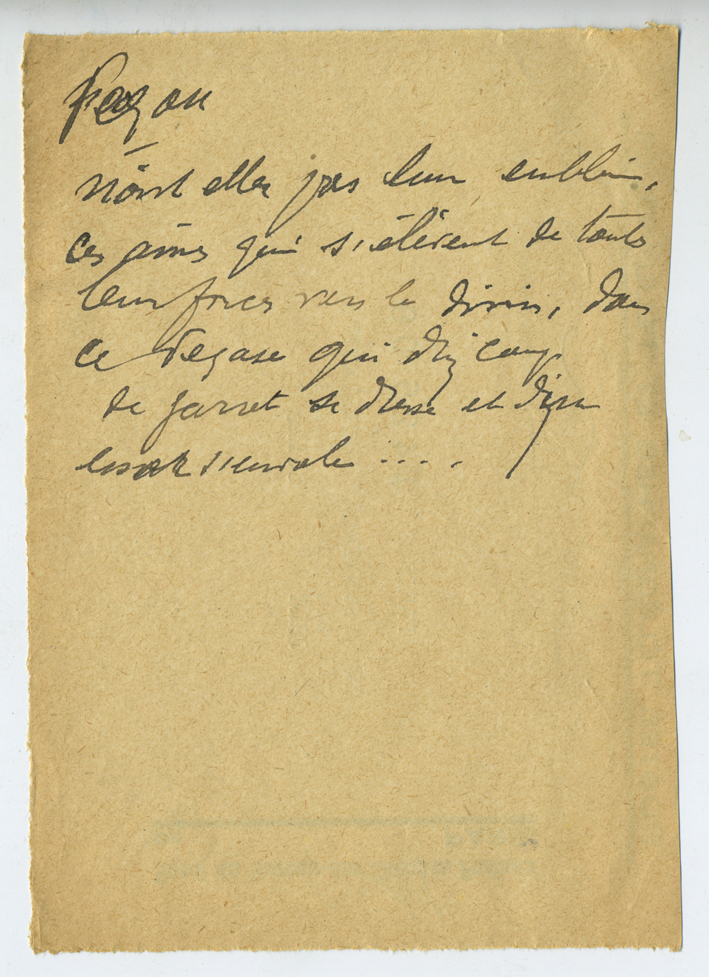 n'ont elles pas leur emblème,
ces âmes qui s'élèvent de toutes
leurs forces vers le divin, dans
ce Pégase qui d'un coup
de jarret se dresse et d'un
essor s'envole ....